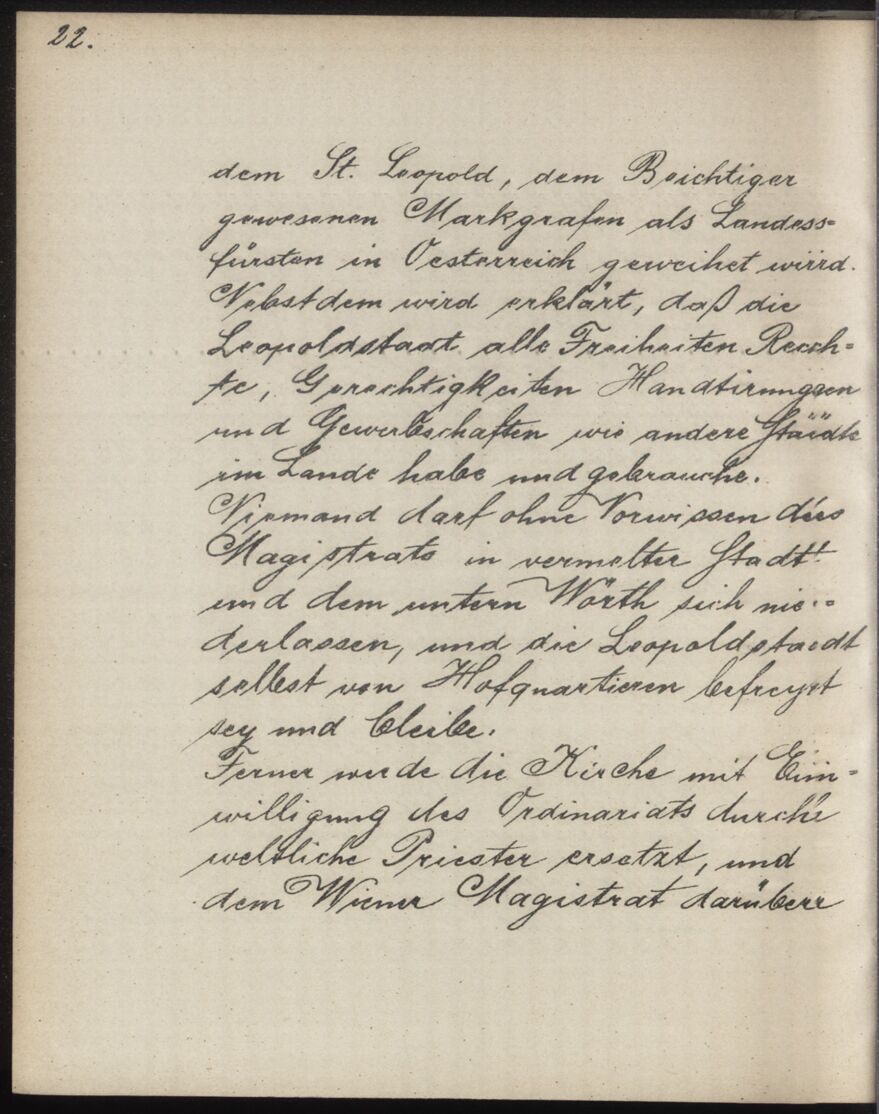 22.
dem St. Leopold, dem Beichtiger
gewesenen Markgrafen als Landess=
fürsten in Oesterreich geweihet wird.
Nebstdem wird erklärt, daß die
Leopoldstadt alle Freiheiten Rech=
te, Gerechtigkeiten Handtirungen
und Gewerbschaften wie andere Städte
im Lande habe und gebrauche.
Niemand darf ohne Vorwissen des
Magistrats in vermelter Stadt
und dem untern Wörth sich nie=
derlassen, und die Leopoldstadt
selbst von Hofquartieren befreyt
sey und bleibe.
Ferner werde die Kirche mit Ein=
willigung des Ordinariats durch
weltliche Priester ersetzt, und
dem Wiener Magistrat darüber